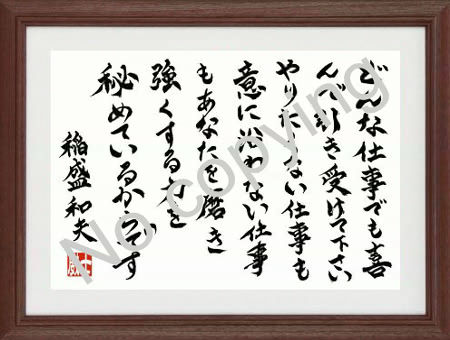 どんな仕事でも喜
んで引き受けて下さい
やりたくない仕事も
意に沿わない仕事
もあなたを磨き
強くする力を
秘めているからです
稲盛和夫
No copying